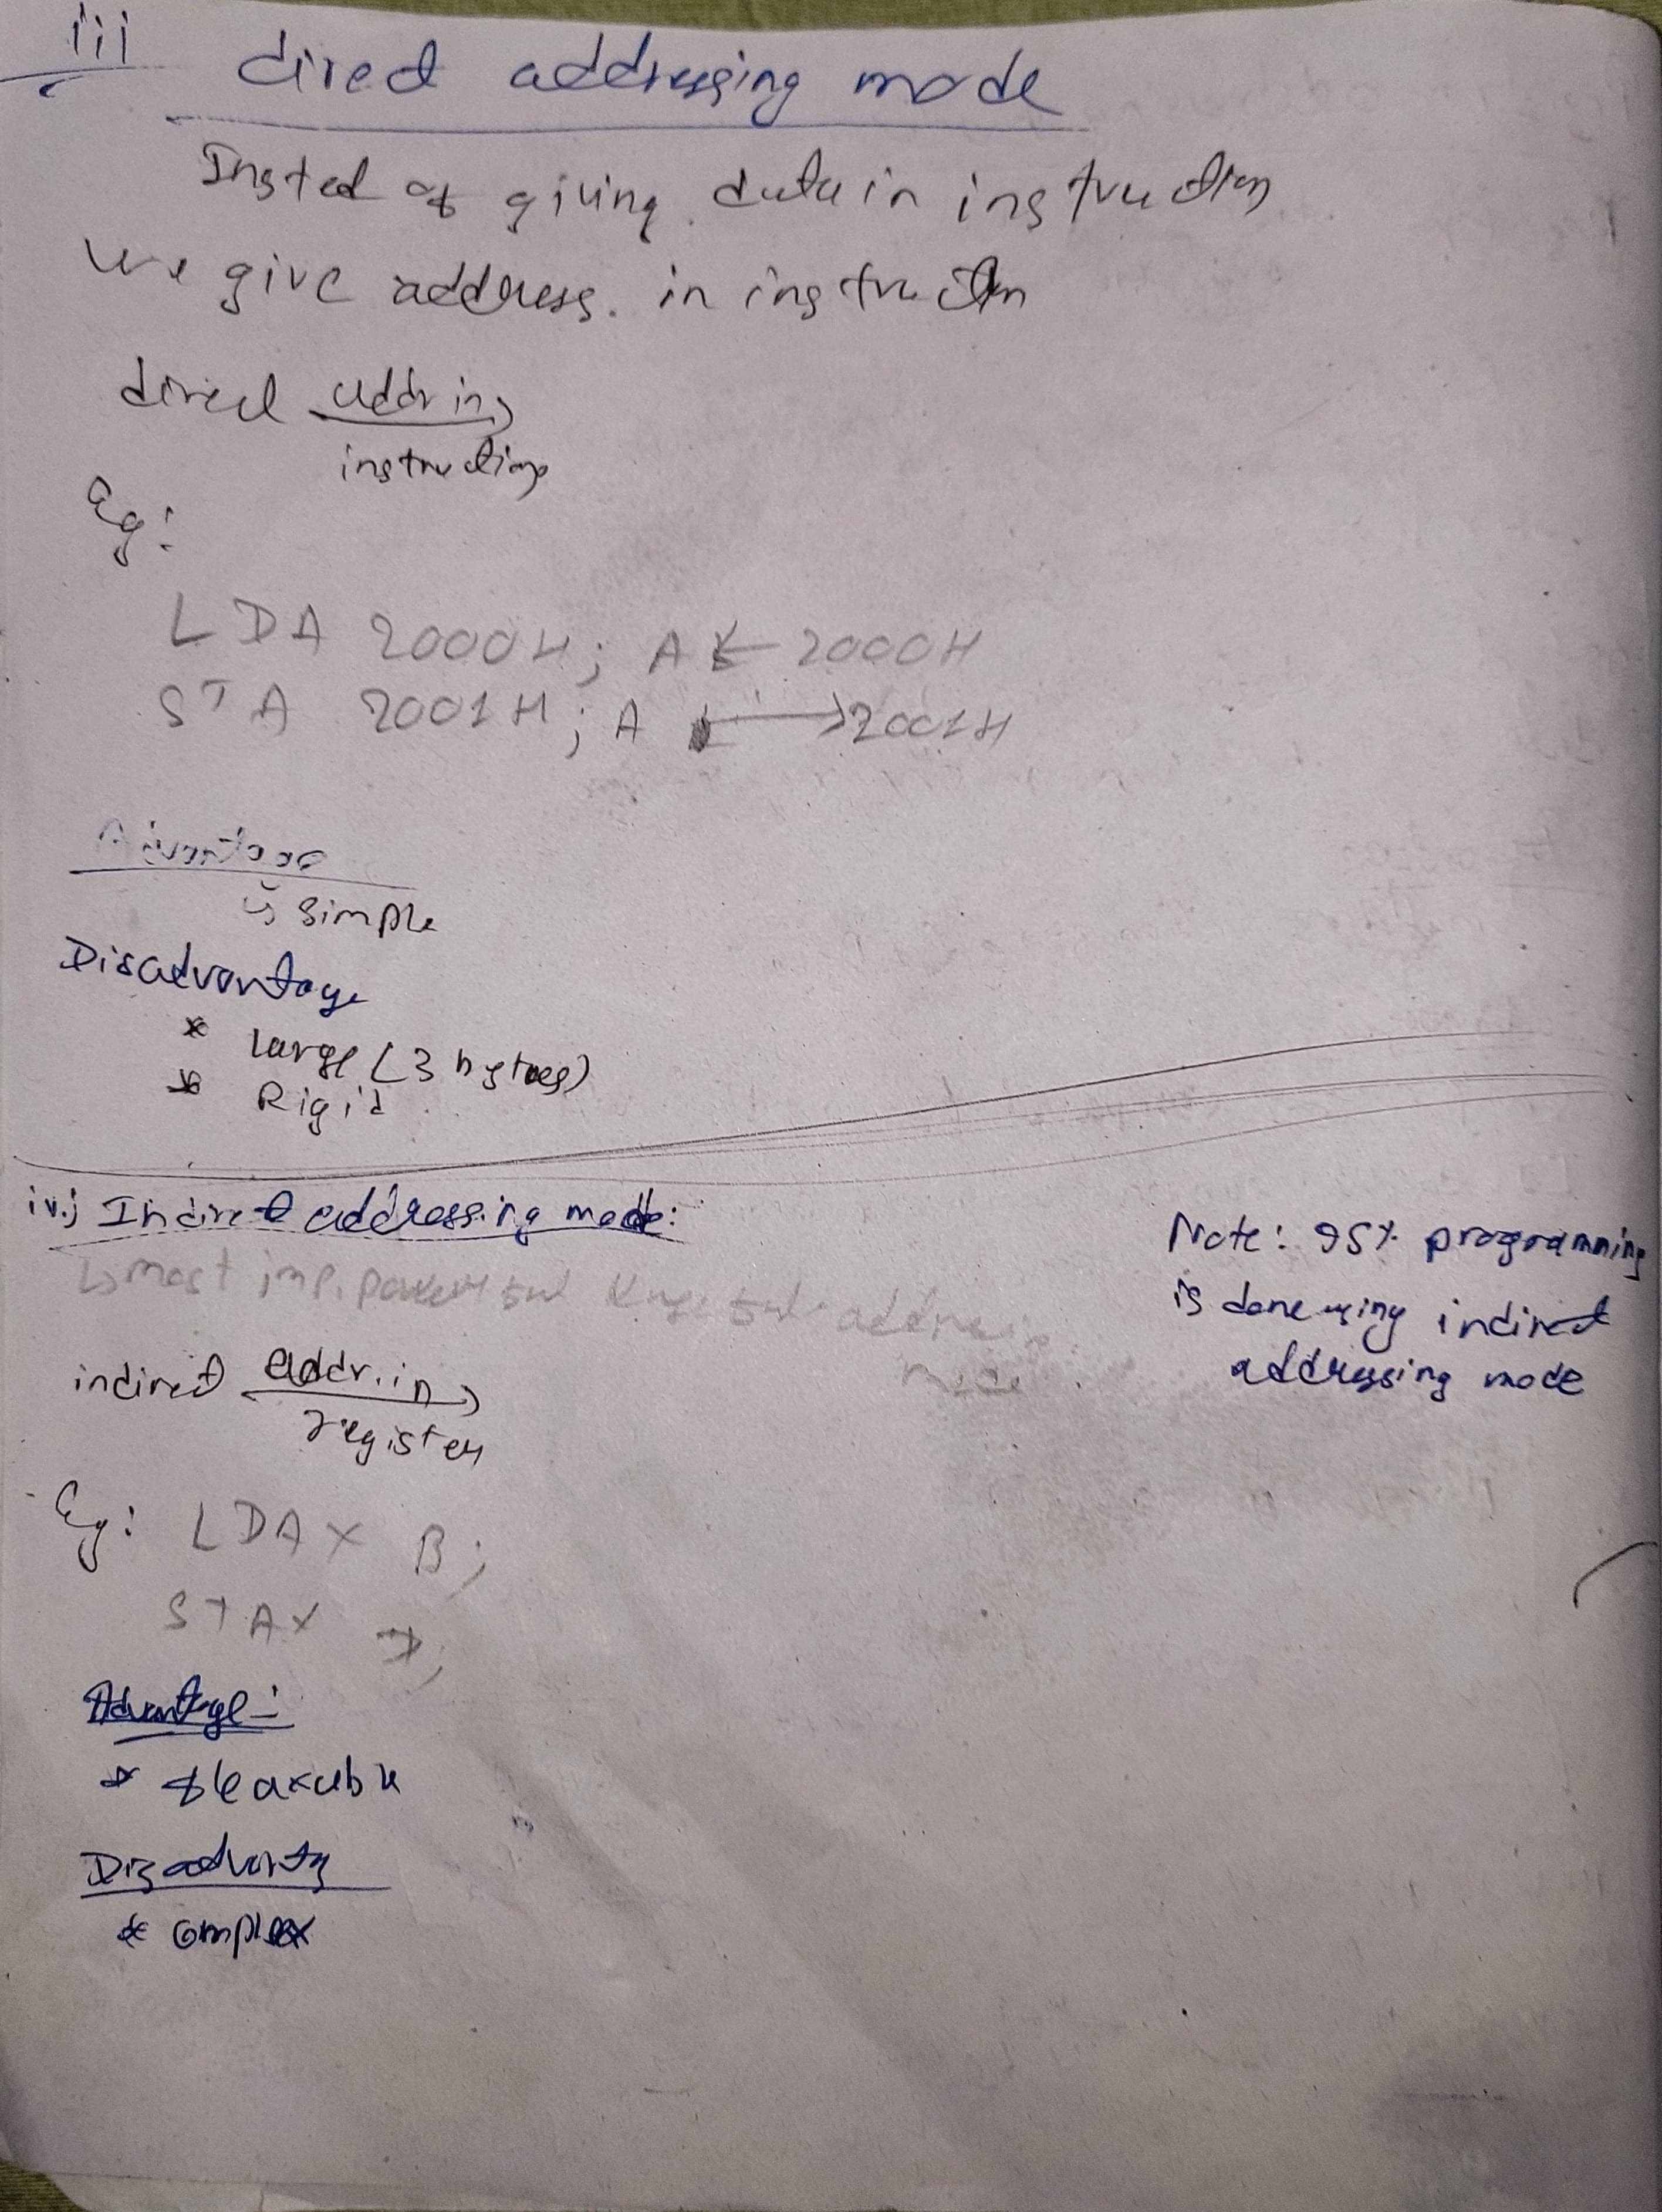 iii direct addressing mode
Insted of giving data in instruction
we give address. in instruction
direct addr in
instruction
Eg:
LDA 2000H; A ← 2000H
STA 2001H; A → 2001H
Advantage
↳ simple
Disadvantage
* large (3 bytes)
* Rigid
iv.) Indirect addressing mode:
↳ most imp. powerful & useful address
mode
Note: 95% programming
is done using indirect
addressing mode
indirect addr. in
register
Eg: LDAX B;
STAX D;
Advantage:
* fleaxible
Disadvantg
* complex